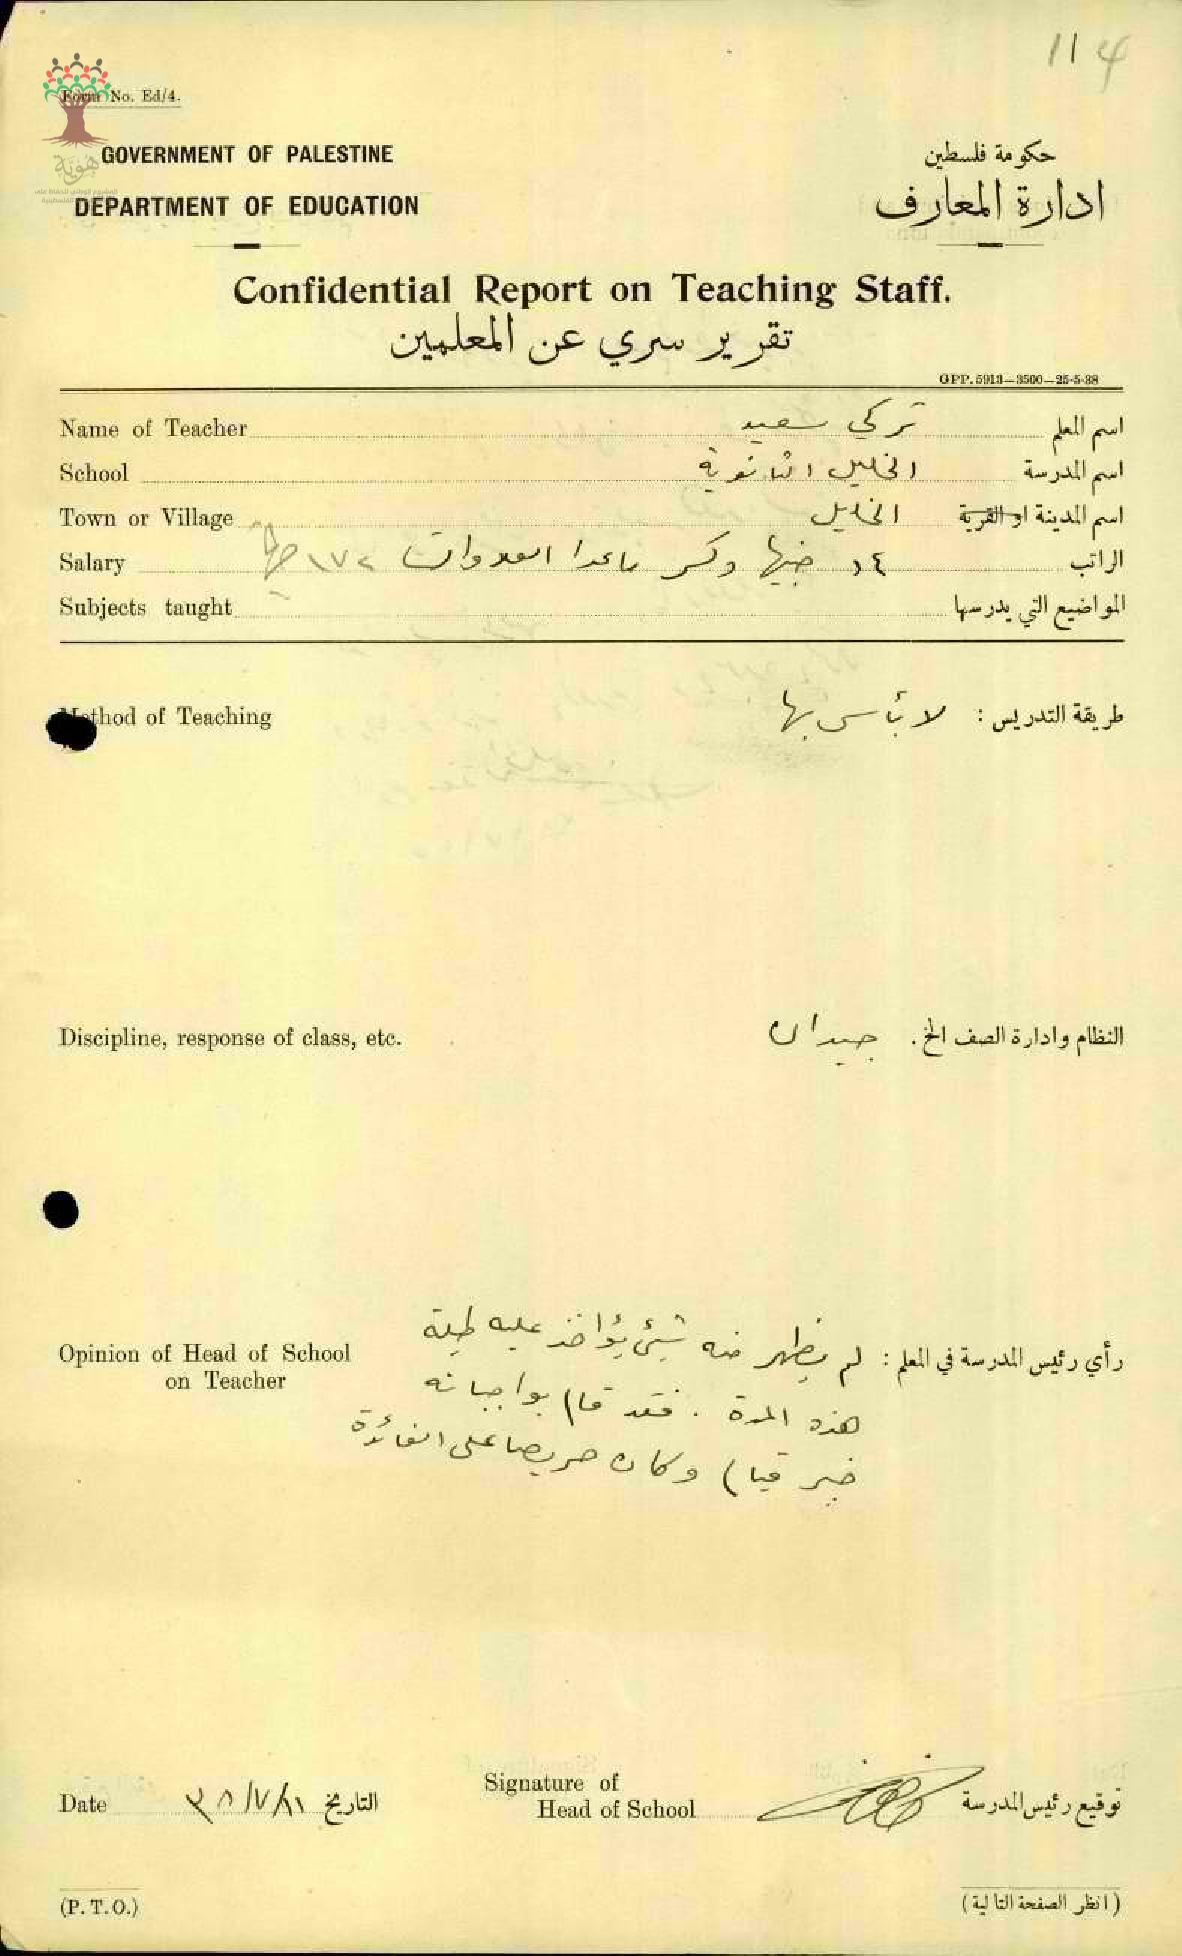 114
Form No. Ed/4.
هوية
GOVERNMENT OF PALESTINE
حكومة فلسطين
DEPARTMENT OF EDUCATION
ادارة المعارف
Confidential Report on Teaching Staff.
تقرير سري عن المعلمين
GPP. 5913—3500—25-5-38
Name of Teacher تركي سعيد اسم المعلم
School الخليل الثانوية اسم المدرسة
Town or Village الخليل اسم المدينة او القرية
Salary جنيها وكسر ماعدا العلاوات الراتب
Subjects taught المواضيع التي يدرسها
Method of Teaching طريقة التدريس : لا بأس بها
Discipline, response of class, etc. النظام وادارة الصف الخ. جيدان
Opinion of Head of School on Teacher رأي رئيس المدرسة في المعلم : لم يظهر منه شيئ يؤاخذ عليه طيلة
هذه المدة . فقد قام بواجباته
خير قيام وكان حريصا على الفائدة
Date التاريخ
Signature of Head of School توقيع رئيس المدرسة
(P. T. O.) (انظر الصفحة التالية)